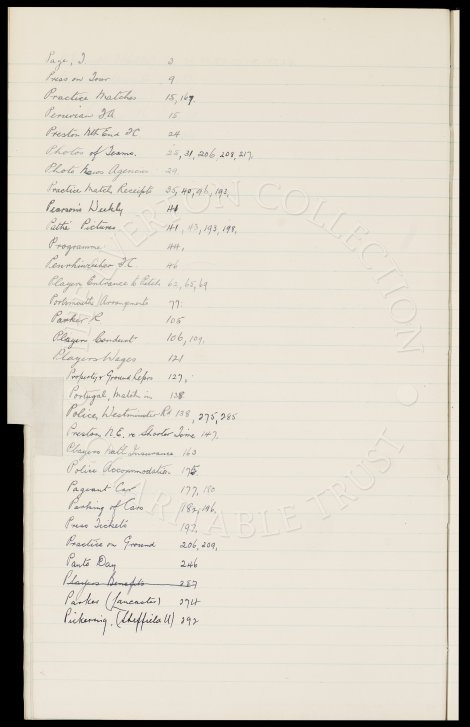 Page, J. 3
Press on Tour 9
Practice Matches 15, 169.
Peruvian 15
Preston Nth End F.C 24
Photos of Teams. 25, 31, 206, 208, 217,
Photo News Agencies 29
Practice Match Receipts 35, 40, 196, 193,
Pearson's Weekly 41
Pathé Pictures 41, 43, 193, 198,
Programme 44,
Penrhiwceiber F.C. 46
Players Entrance to Pitch 62, 65, 69
Portsmouth/Arrangements 77.
Parker R 105
Players Conduct 106, 109,
Players Wages 121
Property & Ground Reprs 127,
Portugal, Match in 138
Police, Westminster Rd 138, 275, 285
Preston N.E. re Shorter Time 147.
Players Natl. Insurance 163
Police Accommodation 175
Pageant Car 177, 180
Parking of Cars 182, 196,
Press Tickets 197,
Practice on Ground 206, 209,
Pants Day 246
Players Benefits 287
Parker (Lancaster) 274
Pickering, (Sheffield U) 292
EVERTON COLLECTION
CHARITABLE TRUST